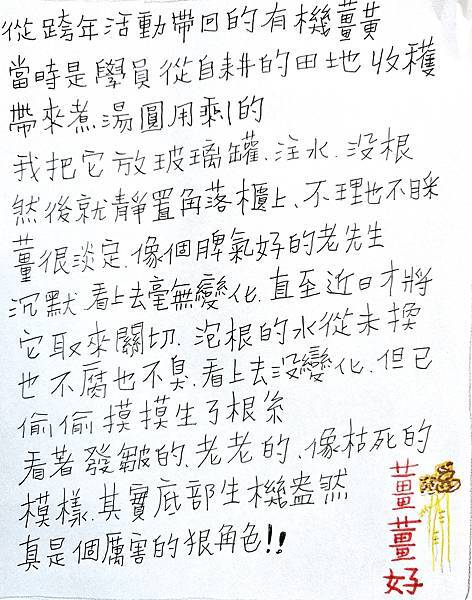 從跨年活動帶回的有機薑黃
當時是學員從自耕的田地收穫
帶來煮湯圓用剩的
我把它放玻璃罐、注水、没根
然後就靜置角落櫃上、不理也不睬
薑很淡定、像個脾氣好的老先生
沉默、看上去毫無變化、直至近日才將
它取來關切、泡根的水從未換
也不腐也不臭、看上去没變化、但已
偷偷摸摸生了根系
看著發皺的、老老的、像枯死的
模樣、其實底部生機盎然
真是個厲害的狠角色!!
薑薑好